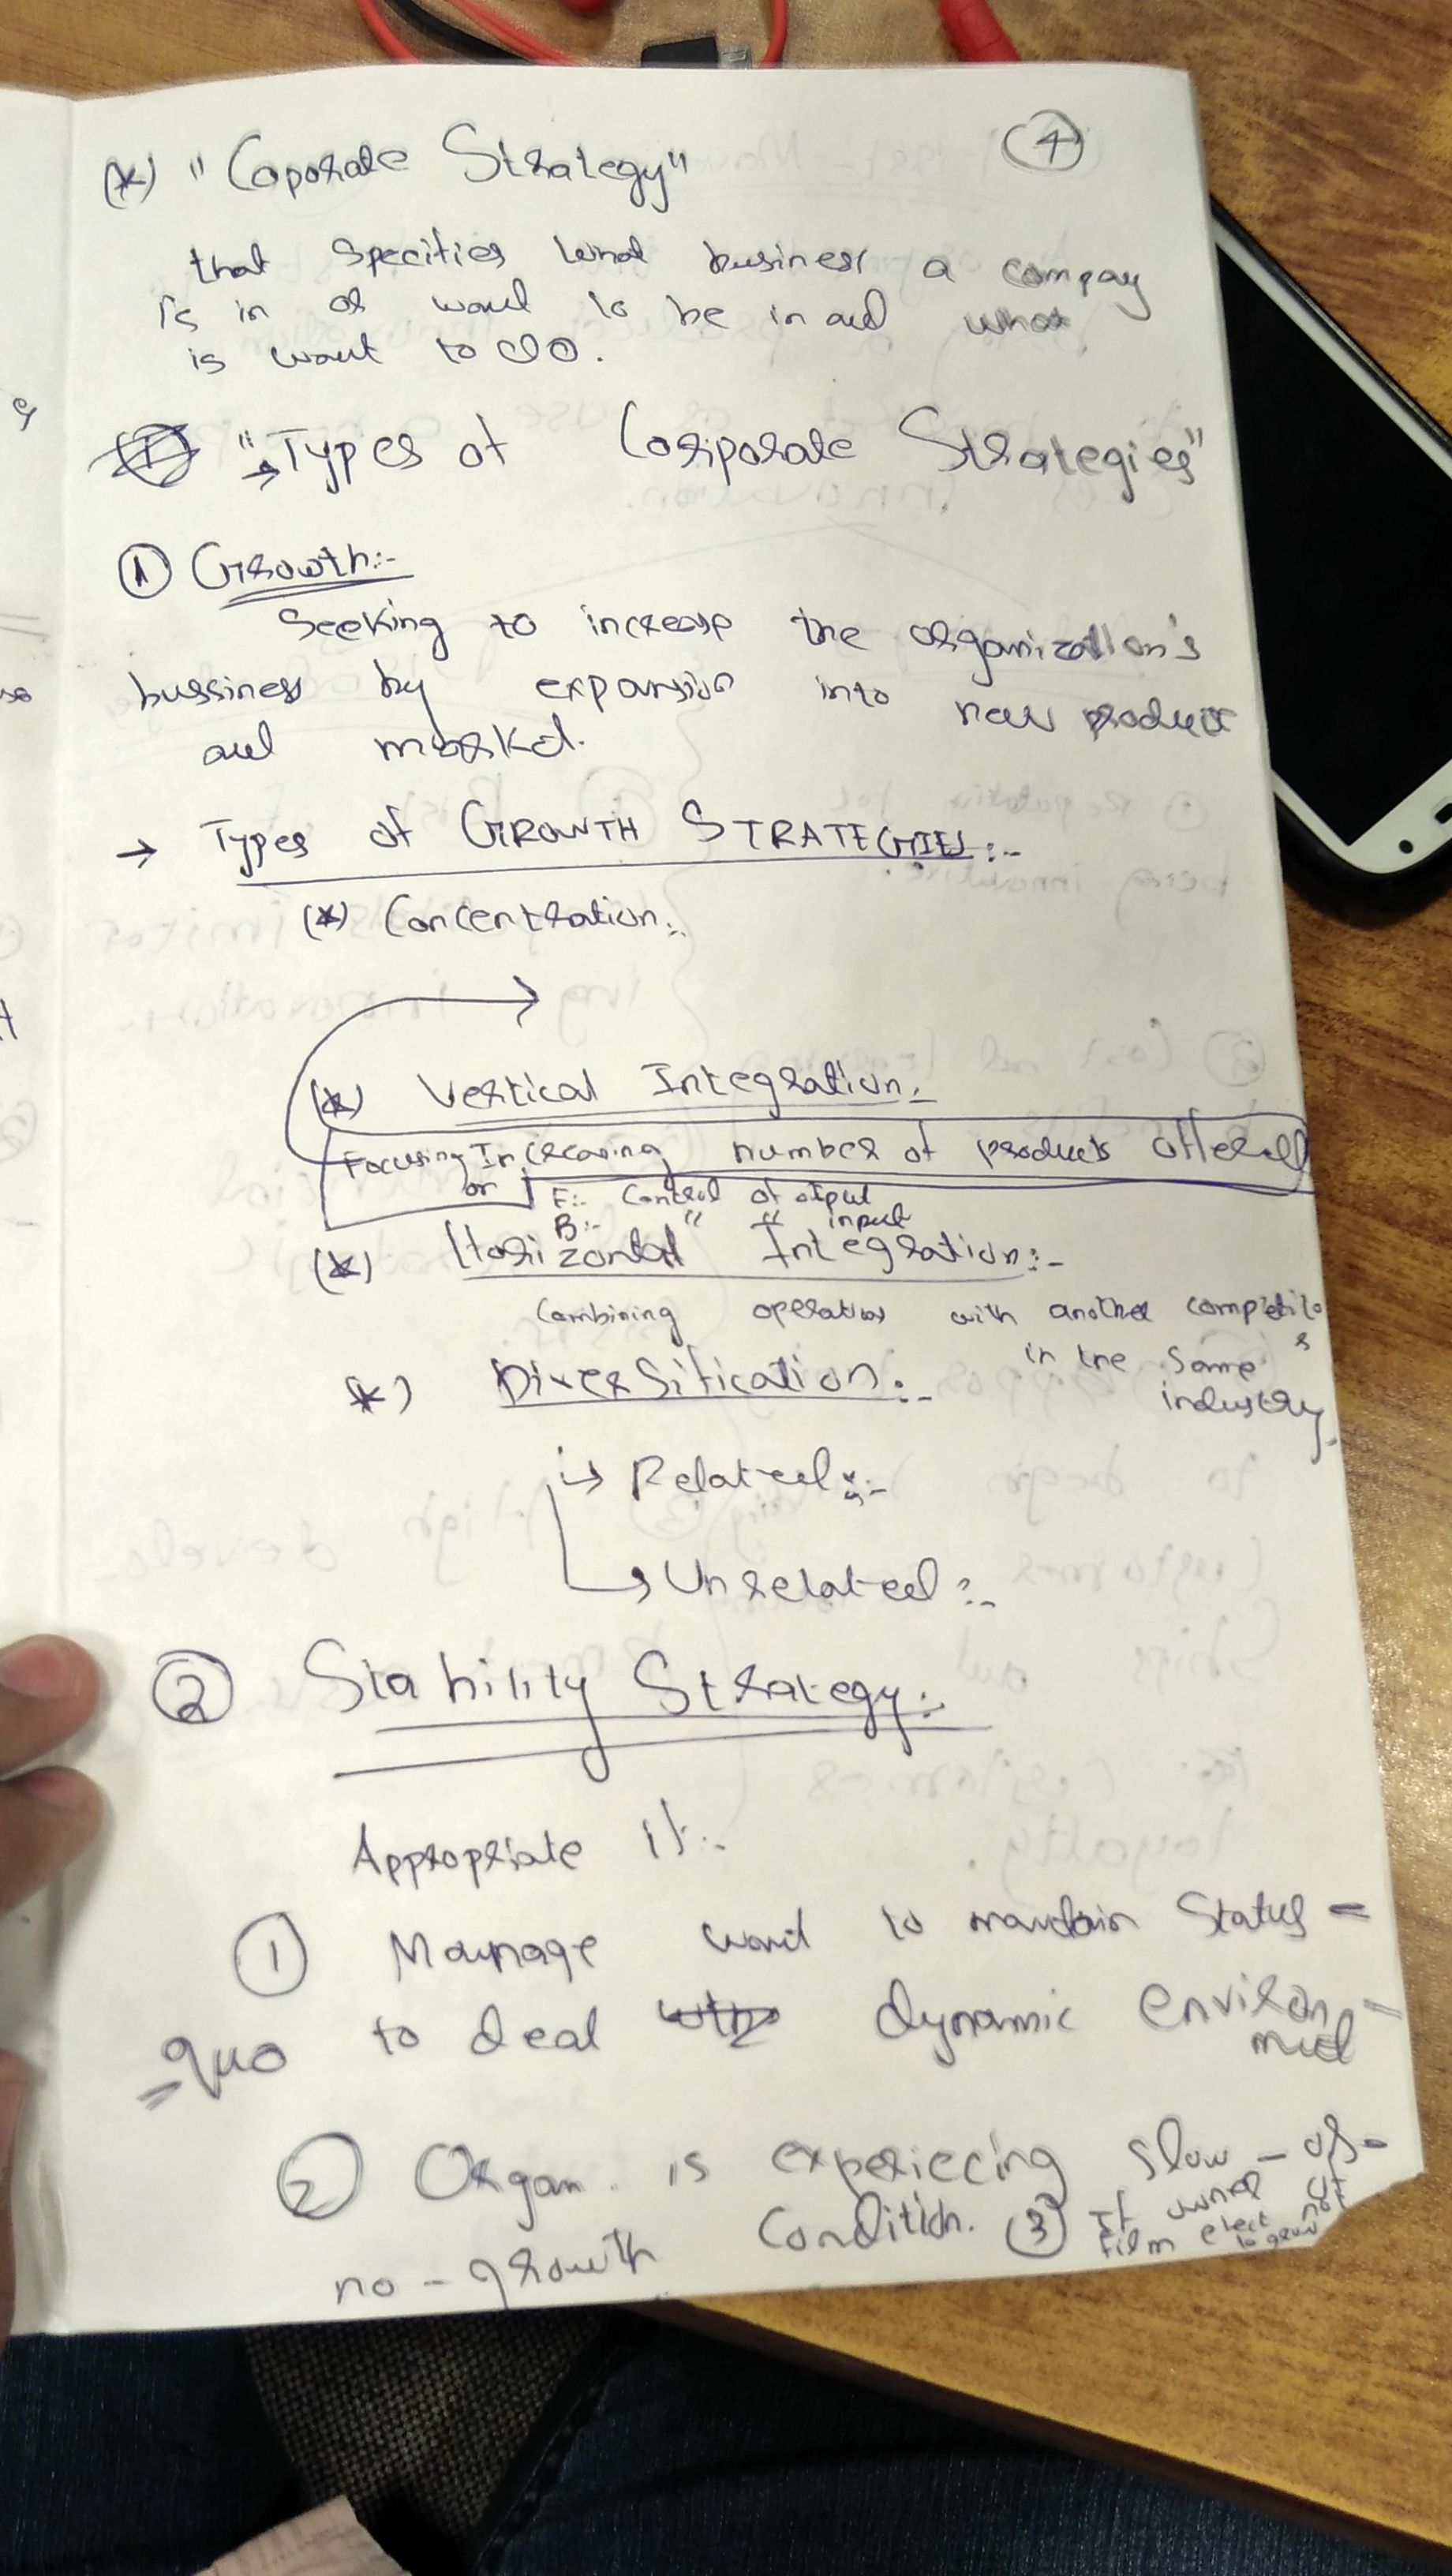 (*) "Coporate Strategy"
4
that specifies what business a compay
is in or want to be in and what
is want to do.
"→ Types of Corporate Strategies"
① Growth:-
Seeking to increase the organization's
bussiness by expansion into new product
and market.
→ Types of GROWTH STRATEGIES:-
(*) Concentration:.
(*) Vertical Integration:-
Focusing Increasing number of products offered
or
F:- Control of otput
B:- " " input
(*) Horizontal Integration:-
Combining operation with another competito
r
in the same
industry.
*) Diversification:-
→ Related:-
→ Unrelated:-
② Stability Strategy:-
Appropriate if:-
① want to maintain Status =
=quo to deal dynamic environ-
ment
② Organ. is experiecing slow - or-
no-growth Condition. ③ If owner of
firm elect not
to grow